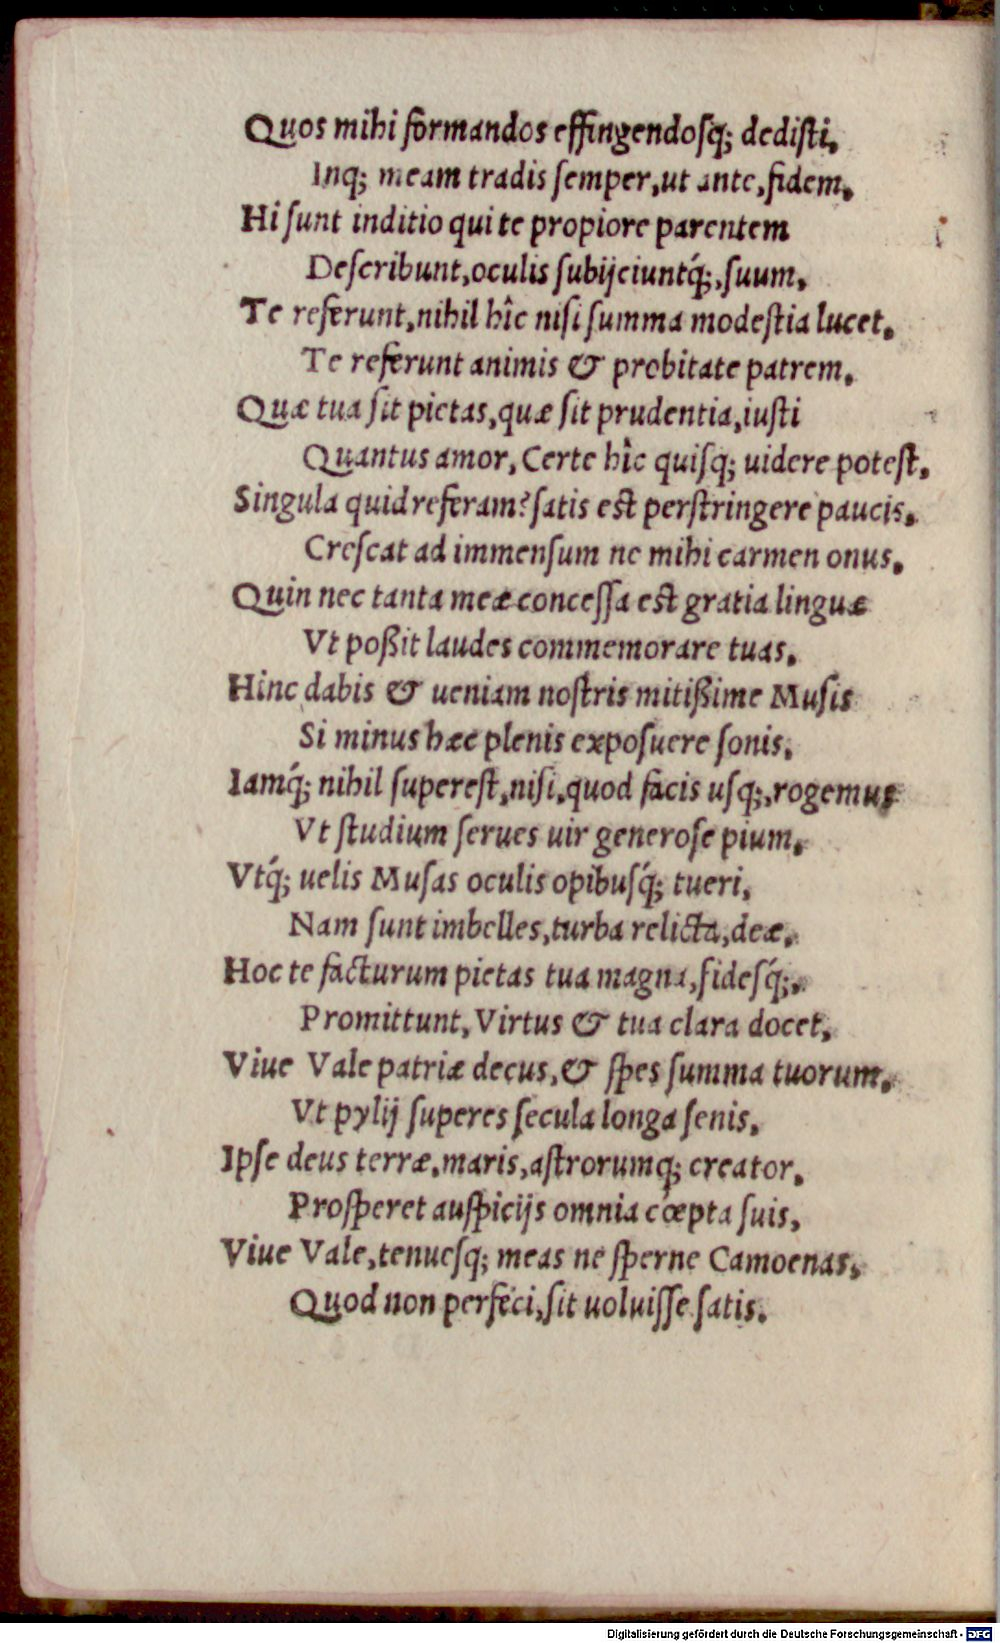 Quos mihi formandos effingendosq́; dedisti,
Inq; meam tradis semper, ut ante, fidem,
Hi sunt inditio qui te propiore parentem
Describunt, oculis subijciuntq́;, suum,
Te referunt, nihil hîc nisi summa modestia lucet,
Te referunt animis & probitate patrem,
Quæ tua sit pietas, quæ sit prudentia, iusti
Quantus amor, Certe hîc quisq; uidere potest,
Singula quid referam? satis est perstringere paucis,
Crescat ad immensum ne mihi carmen onus,
Quin nec tanta meæ concessa est gratia linguæ
Vt poßit laudes commemorare tuas,
Hinc dabis & ueniam nostris mitißime Musis
Si minus hæc plenis exposuere sonis,
Iamq́; nihil superest, nisi, quod facis usq;, rogemus
Vt studium serues uir generose pium,
Vtq́; uelis Musas oculis opibusq́; tueri,
Nam sunt imbelles, turba relicta, deæ,
Hoc te facturum pietas tua magna, fidesq́;,
Promittunt, Virtus & tua clara docet,
Viue Vale patriæ decus, & spes summa tuorum,
Vt pylij superes secula longa senis,
Ipse deus terræ, maris, astrorumq; creator,
Prosperet auspicijs omnia cœpta suis,
Viue Vale, tenuesq; meas ne sperne Camoenas,
Quod non perfeci, sit uoluisse satis.
Digitalisierung gefördert durch die Deutsche Forschungsgemeinschaft - DFG